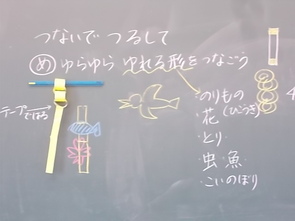 つないで つるして
め ゆらゆら ゆれる形をつなごう
テープではる
・のりもの
(ひこうき)
・花
・とり
・虫・魚
・こいのぼり